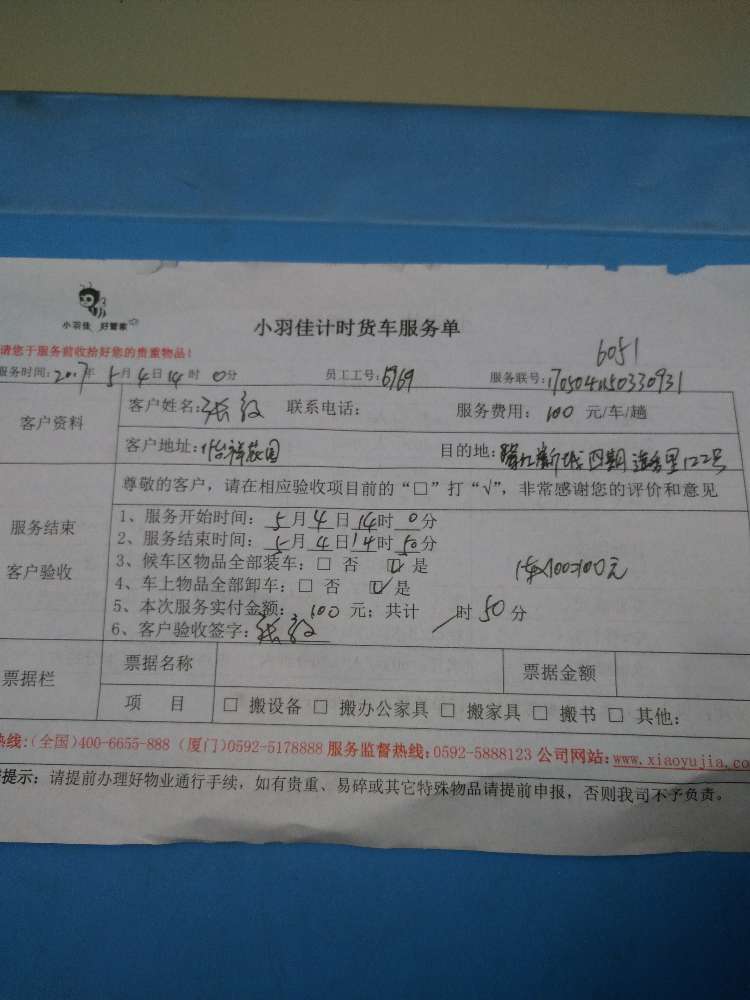 小羽佳 好管家
小羽佳计时货车服务单
请您于服务前收拾好您的贵重物品！
6051
服务时间：2017年 5月 4日 14时 0分 员工工号：6969 服务联号：170504150330931
客户资料
客户姓名：张 联系电话： 服务费用：100 元/车/趟
客户地址：怡祥花园 目的地：新城四期 里122号
服务结束
客户验收
尊敬的客户，请在相应验收项目前的“□”打“√”，非常感谢您的评价和意见
1、服务开始时间：5月4日14时0分
2、服务结束时间：5月4日14时50分
3、候车区物品全部装车：□ 否 ☑ 是
1车×100=100元
4、车上物品全部卸车：□ 否 ☑ 是
5、本次服务实付金额：100 元；共计 / 时50分
6、客户验收签字：张
票据栏
票据名称 票据金额
项 目 □ 搬设备 □ 搬办公家具 □ 搬家具 □ 搬书 □ 其他：
热线：(全国)400-6655-888 (厦门)0592-5178888 服务监督热线：0592-5888123 公司网站：www.xiaoyujia.co
提示：请提前办理好物业通行手续，如有贵重、易碎或其它特殊物品请提前申报，否则我司不予负责。